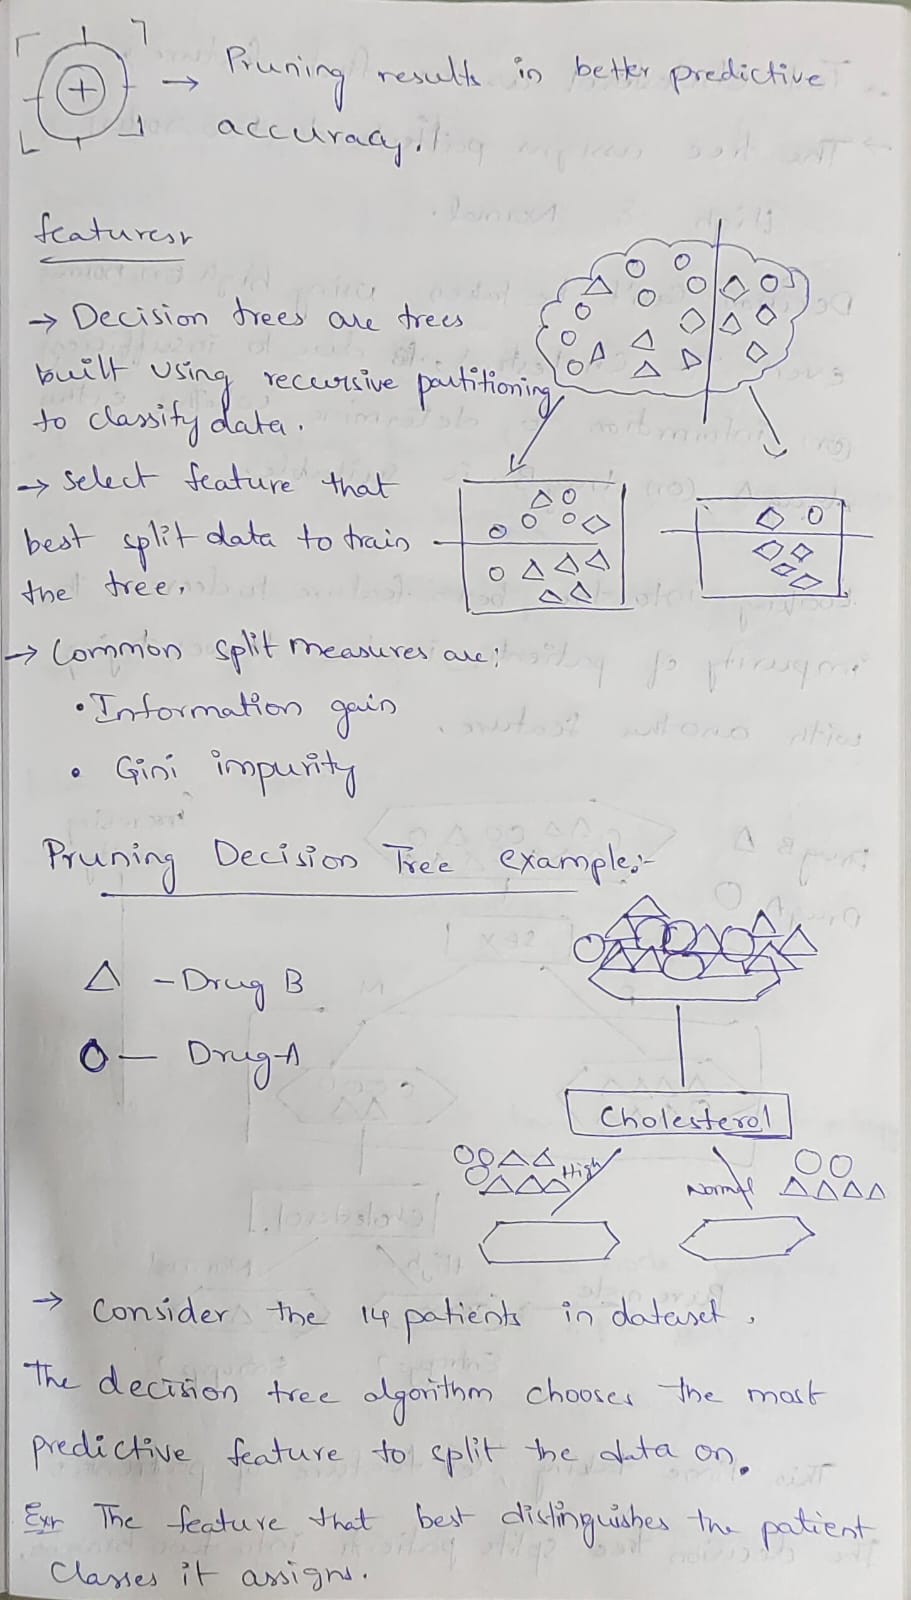 → Pruning results in better predictive
accuracy.
features:
→ Decision trees are trees
built using recursive partitioning
to classify data.
→ Select feature that
best split data to train
the tree.
→ Common split measures are:
• Information gain
• Gini impurity
Pruning Decision Tree example:-
△ - Drug B
O - Drug A
Cholesterol
High
Normal
→ Consider the 14 patients in dataset.
The decision tree algorithm chooses the most
predictive feature to split the data on.
Ex: The feature that best distinguishes the patient
classes it assigns.